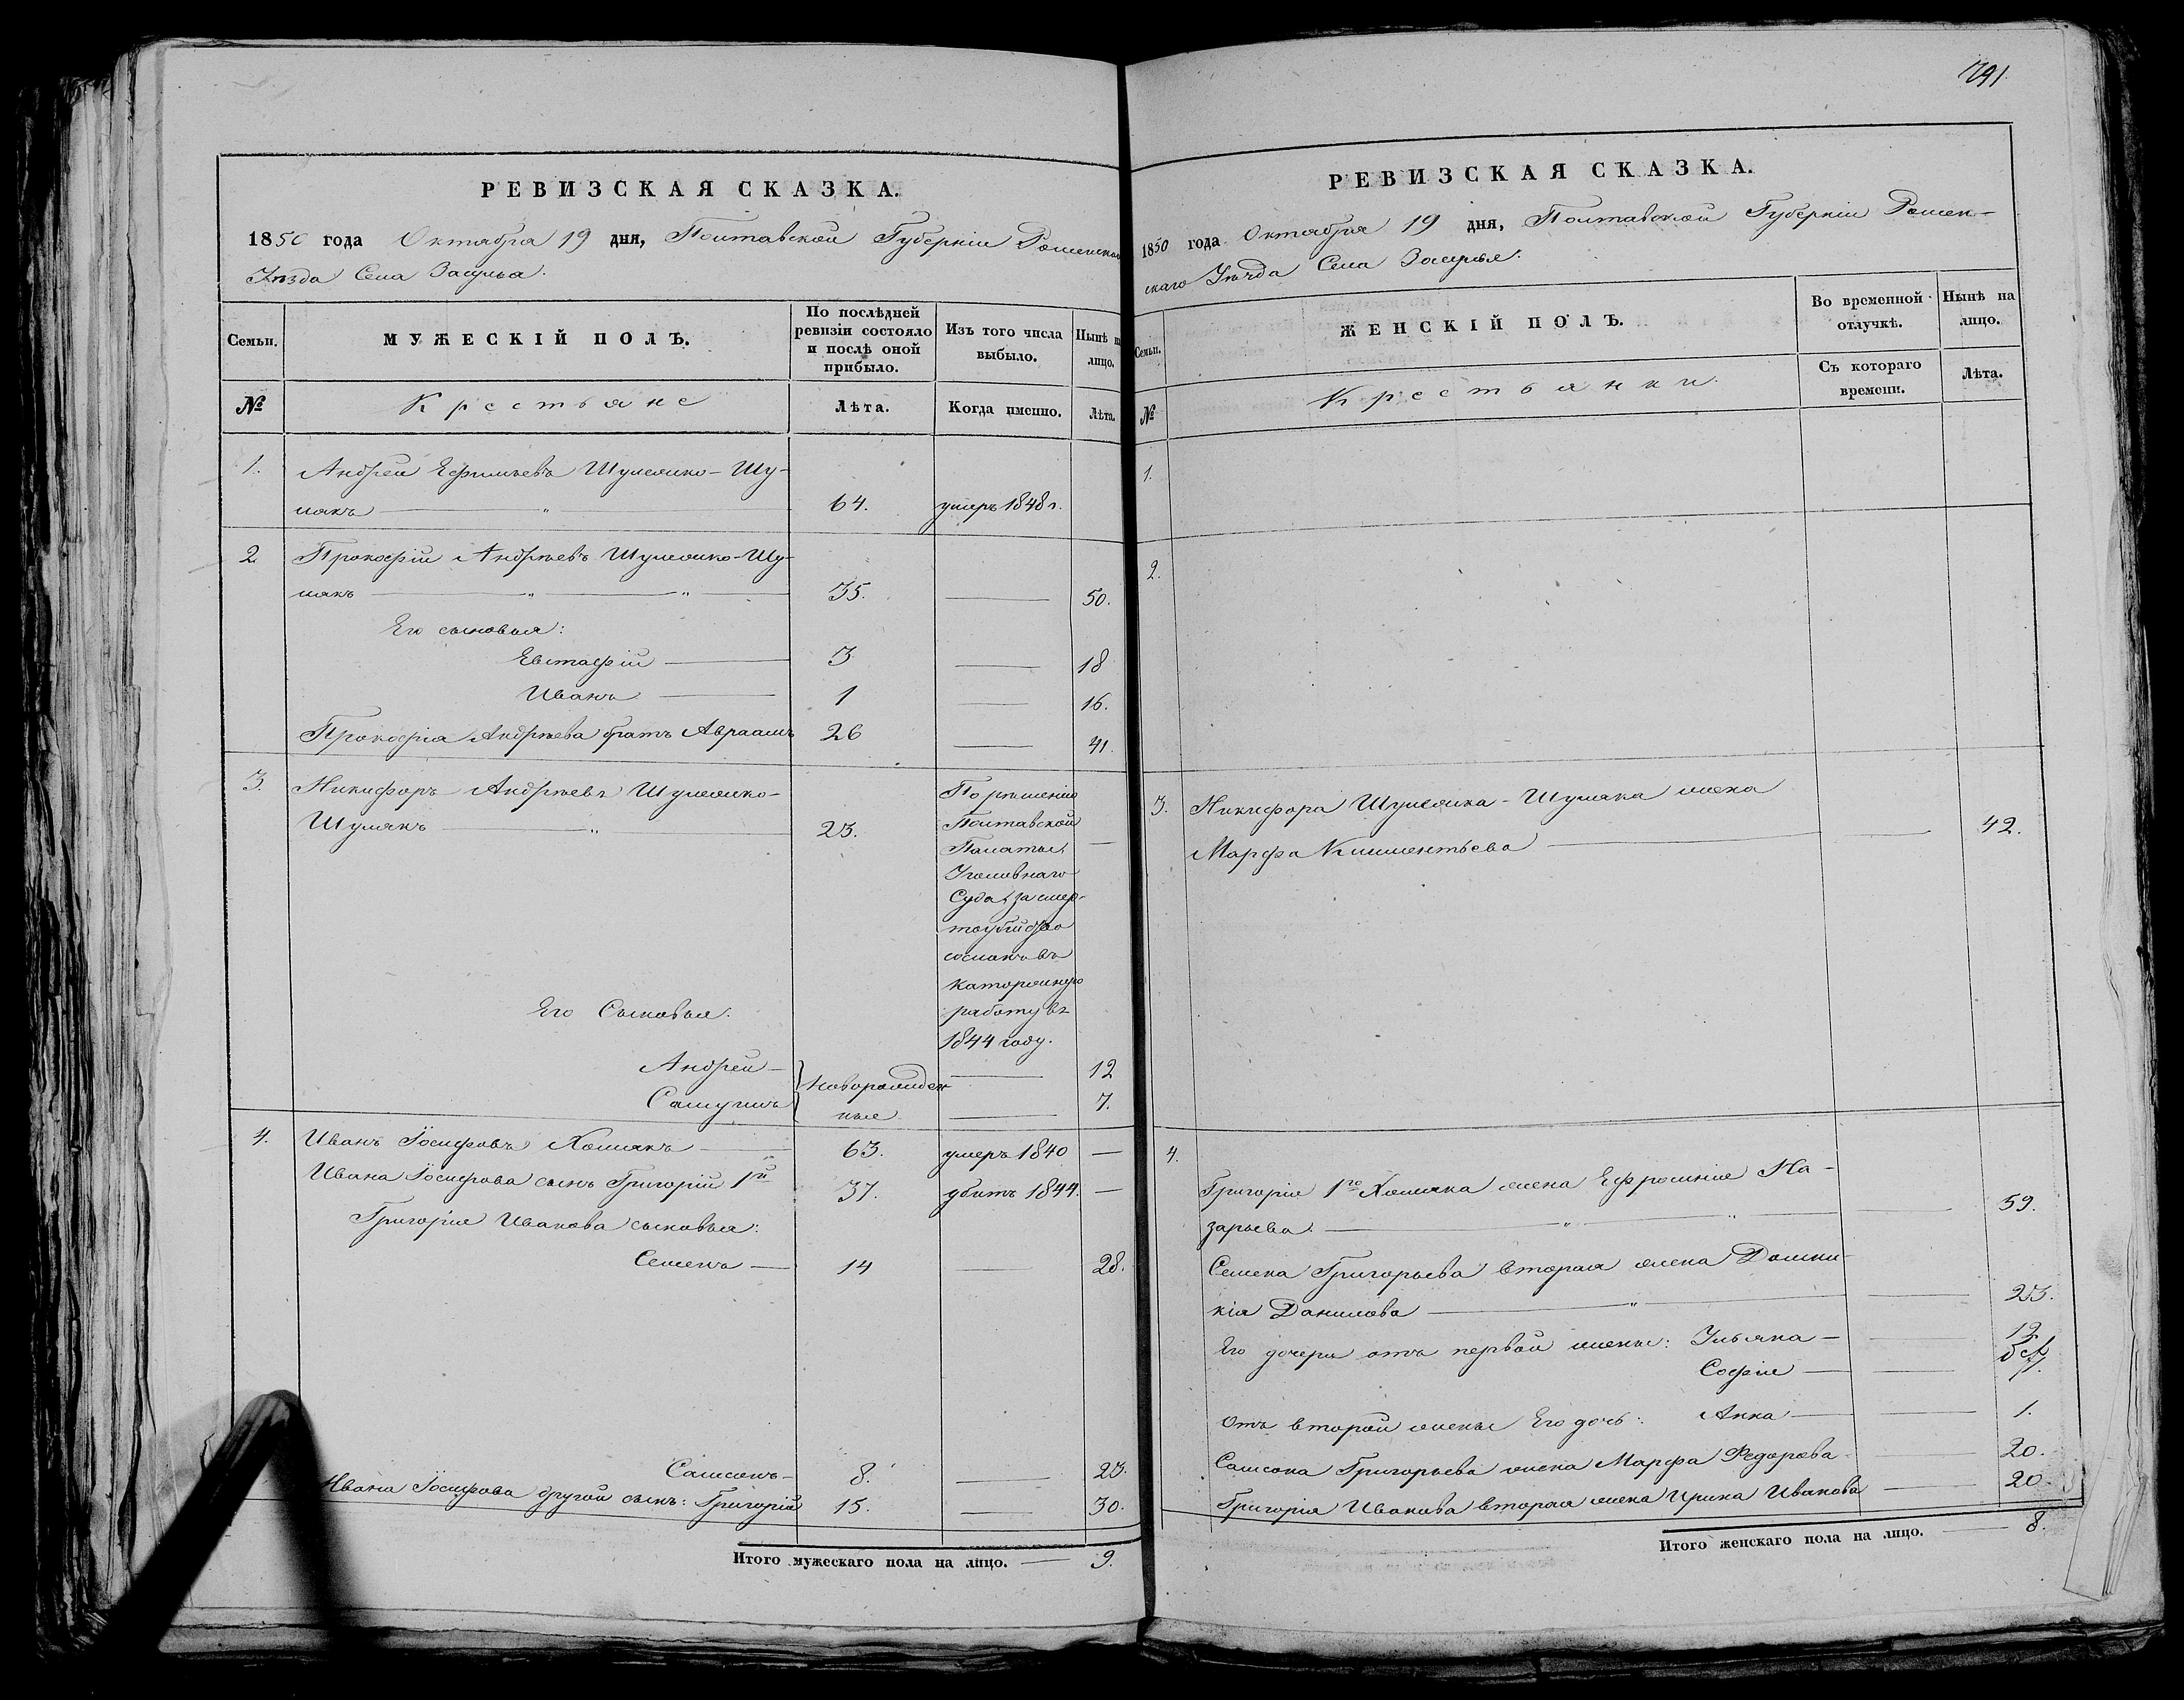 РЕВИЗСКАЯ СКАЗКА.
1850 года Октября 19 дня, Полтавской Губерніи Роменскаго
Уѣзда Села Засулья.
Семьи.
МУЖЕСКІЙ ПОЛЪ.
По послѣдней ревизіи состояло и послѣ оной прибыло.
Изъ того числа выбыло.
Нынѣ на лицо.
№
Крестьяне
Лѣта.
Когда именно.
Лѣта.
1. Андрей Ефимьевъ Шуляико-Шу-
лякъ — " 64. умеръ 1848 г.
2. Прокофій Андрѣевъ Шуляико-Шу-
лякъ — " — " — 35. — 50.
Его сыновья:
Евстафій — 3 — 18
Иванъ — 1 — 16.
Прокофія Андрѣева братъ Авраамъ 26 — 41.
3. Никифоръ Андрѣевъ
— " — 23.
По рѣшенію
Полтавской
Палаты
Уголовнаго
Суда за смер-
тоубійство
сосланъ въ
каторжную
работу въ
1844 году. —
Его Сыновья:
Андрей — } новорожден — 12
Самуилъ } ные — 7.
4. Иванъ Іосифовъ Хомякъ — 63. умеръ 1840 —
Ивана Іосифова сынъ Григорій 1й 37. убитъ 1844. —
Григорія Иванова сыновья:
Семенъ — 14 — 28.
Самсонъ — 8. — 23.
Ивана Іосифова другой сынъ: Григорій 15. — 30.
Итого мужескаго пола на лицо. — 9.
1791
РЕВИЗСКАЯ СКАЗКА.
1850 года Октября 19 дня, Полтавской Губерніи Ромен-
скаго Уѣзда Села Засулья.
Семьи.
ЖЕНСКІЙ ПОЛЪ.
Во временной отлучкѣ.
Нынѣ на лицо.
№
Крестьянки.
Съ котораго времени.
Лѣта.
1.
2.
3. Никифора жена
Марфа Климентьева — — 42.
4. Григорія 1го Хомяка жена Ефросинія На-
зарьева. — " — " — — 59.
Семена Григорьева вторая жена Домни-
кія Данилова — " — — 23.
Его дочери отъ первой жены: Ульяна — — 12
Софія — — 7.
Отъ второй жены Его дочь: Анна — — 1.
Самсона Григорьева жена Марфа Федорова — 20.
Григорія Иванова вторая жена Ирина Иванова — 20.
Итого женскаго пола на лицо. — 8.